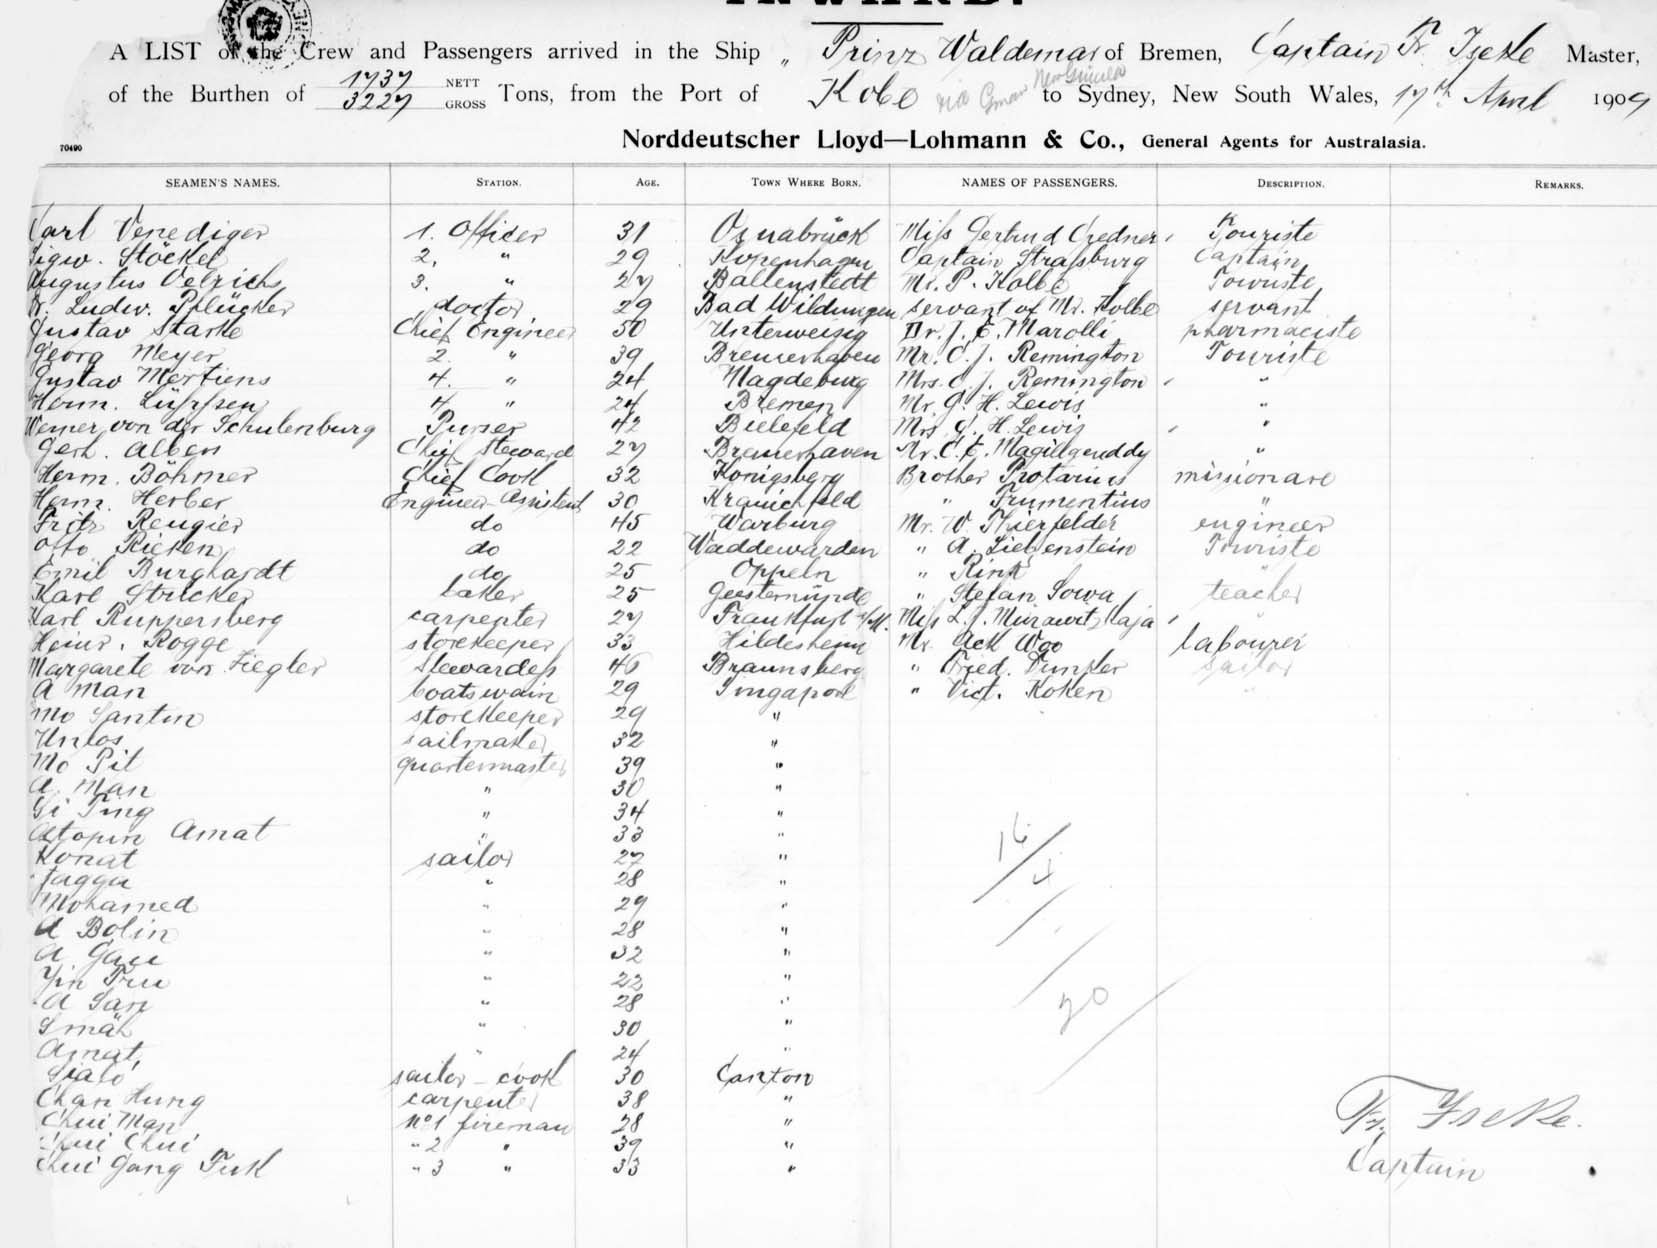 INWARD.
A LIST of the Crew and Passengers arrived in the Ship „ Prinz Waldemar of Bremen, Captain Fr. Iseke Master,
of the Burthen of 1737 NETT 3227 GROSS Tons, from the Port of Kobe via New Guinea to Sydney, New South Wales, 17th April 1909
70490 Norddeutscher Lloyd—Lohmann & Co., General Agents for Australasia.
SEAMEN'S NAMES. STATION. AGE. TOWN WHERE BORN. NAMES OF PASSENGERS. DESCRIPTION. REMARKS.
Carl Venediger 1. Officer 31 Osnabrück Miss Gertrud Credner Touriste
Sigw. Stöckel 2. " 29 Kopenhagen Captain Strassburg Captain
Augustus Oelrichs 3. " 27 Ballenstedt Mr. P. Kolbe Touriste
Dr. Ludw. Pflücker doctor 29 Bad Wildungen servant of Mr. Kolbe servant
Gustav Starke Chief Engineer 50 Unterweisig Dr. J. E. Marolli pharmaciste
Georg Meyer 2. " 39 Bremerhaven Mr. C. J. Remington Touriste
Gustav Mertiens 4. " 24 Magdeburg Mrs. C. J. Remington "
Herm. Lürssen 4. " 24 Bremen Mr. G. H. Lewis "
Werner von der Schulenburg Purser 42 Bielefeld Mrs. G. H. Lewis "
Gerh. Alben Chief Steward 27 Bremerhaven Mr. C. E. Magillguddy "
Herm. Böhmer Chief Cook 32 Königsberg Brother Protarius missionare
Herm. Herber Engineer-Assistent 30 Kranichfeld " Frumentius "
Fritz Reugier do 45 Warburg Mr. W. Thierfelder engineer
Otto Ricken do 22 Waddewarden " A. Liebenstein Touriste
Emil Burghardt do 25 Oppeln " Rink "
Karl Stricker baker 25 Geestemünde " Stefan Sowa teacher
Karl Ruppersberg carpenter 27 Frankfurt a/M. Miss L. J. "
Heinr. Rogge storekeeper 33 Hildesheim Mr. Ack Woo labourer
Margarete von Ziegler stewardess 46 Braunsberg " Fried. Dunker sailor
A Man boatswain 29 Singapore " Vict. Koken "
Mo Santin storekeeper 29 "
Unlos sailmaker 32 "
Mo Pit quartermaster 39 "
A. Man " 30 "
Si Ting " 34 "
Atopin Amat " 33 "
Konat sailor 27 "
Jagga " 28 "
Mohamed " 29 "
A Bolin " 28 "
A Gau " 32 "
Yin Fru " 22 "
A San " 28 "
Smäh " 30 "
Amat " 24 "
Sialo sailor-cook 30 Canton
Chan Hung carpenter 38 "
Chui Man No 1 fireman 28 "
Chui Chui " 2 " 39 "
Chui Gang Fuk " 3 " 33 "
16
4
20
Fr. Iseke.
Captain